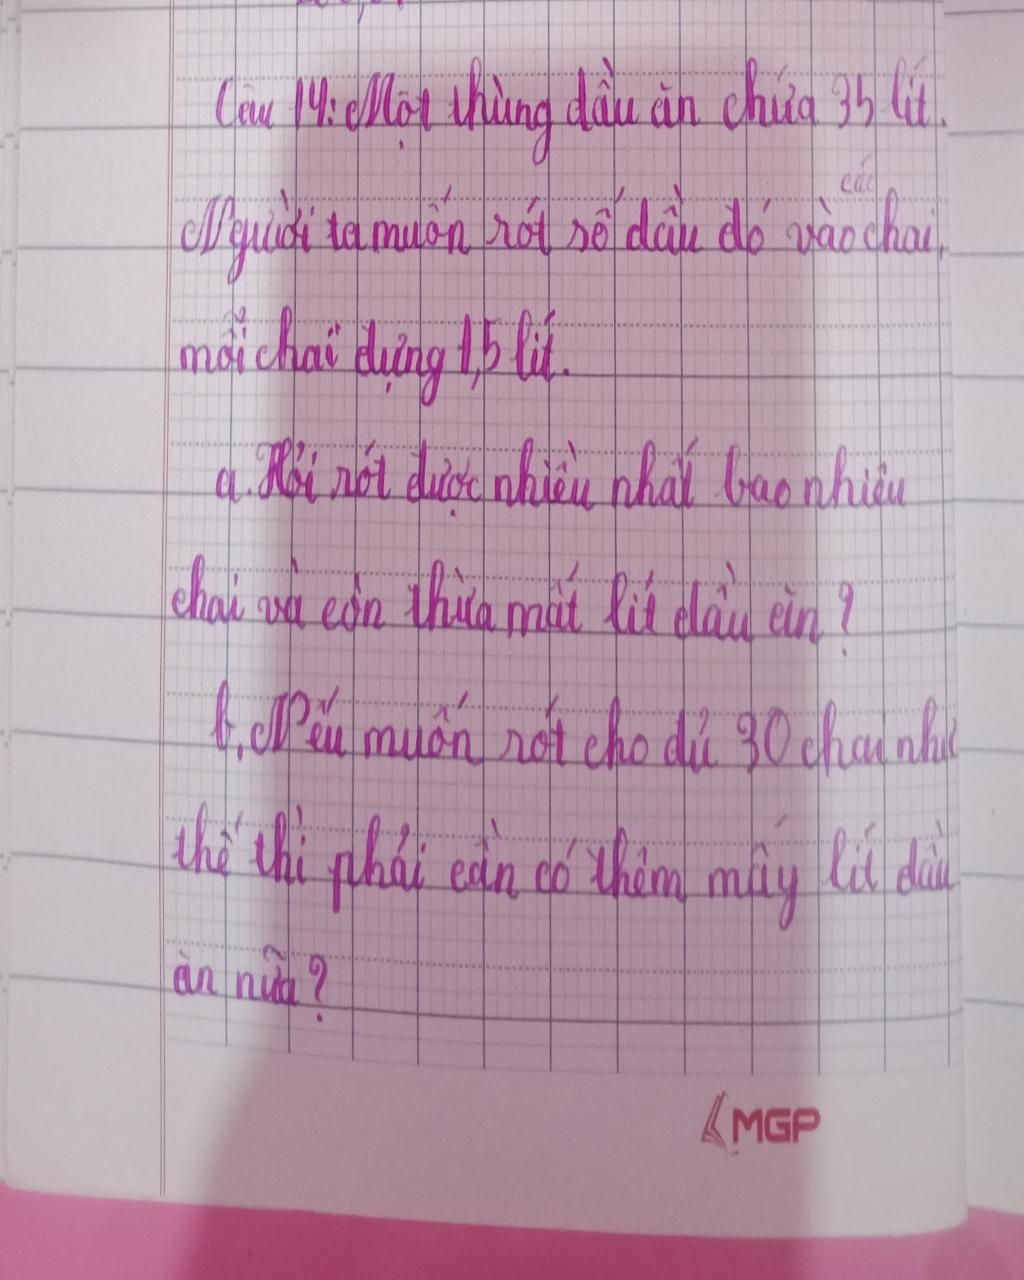 Câu 14: Một thùng dầu ăn chứa 35 lít.
các
Người ta muốn rót số dầu đó vào chai,
mỗi chai đựng 1,5 lít.
a. Hỏi rót được nhiều nhất bao nhiêu
chai và còn thừa mất lít dầu ăn?
b, Nếu muốn rót cho đủ 30 chai như
thế thì phải cần có thêm mấy lít dầu
ăn nữa?
MGP